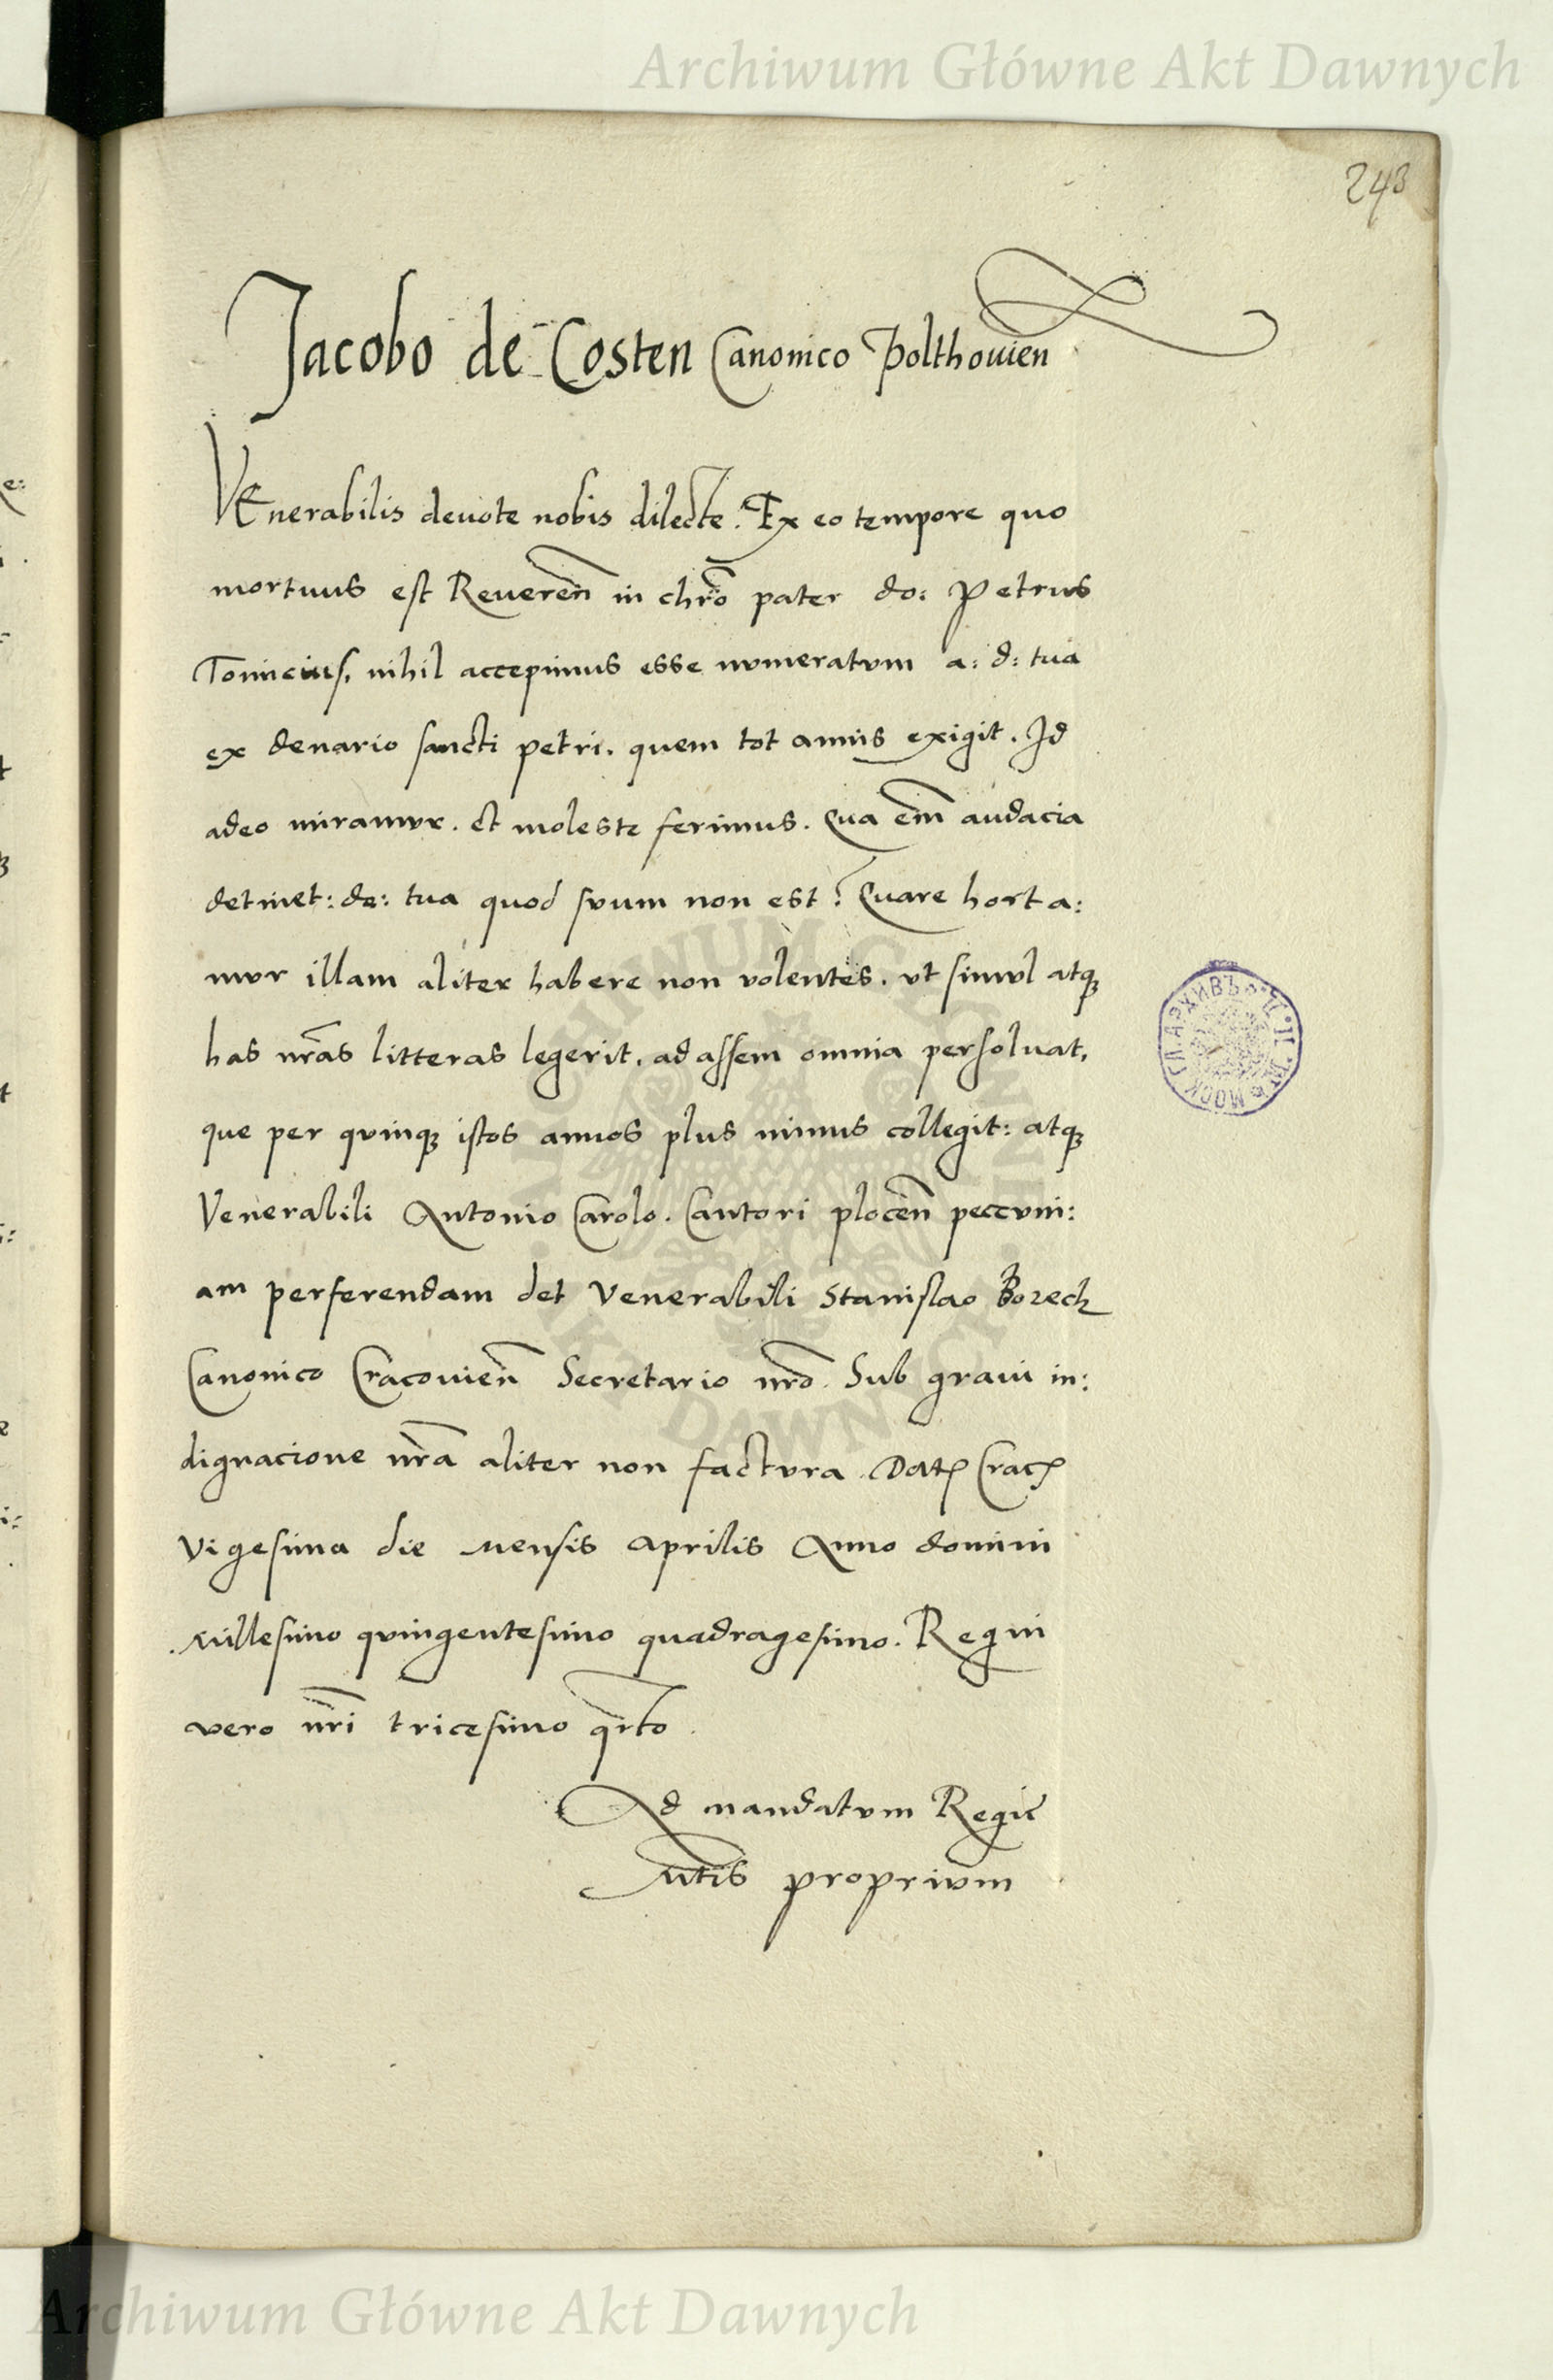 Archiwum Główne Akt Dawnych
243
Jacobo de Costen Canonico Polthouien
VEnerabilis deuote nobis dilecte. Ex eo tempore quo
mortuus est Reueren̄ in chrō pater do: Petrus
Tomicius, nihil accepimus esse numeratvm a: d: tua
ex denario sancti petri. quem tot annis exigit. Id
adeo miramvr. et moleste ferimus. Qua em̄ audacia
detinet: de: tua quod svum non est? Quare horta:
mvr illam aliter habere non volentes. vt simvl atqꜗ
has nr̄as litteras legerit, ad assem omnia persoluat,
que per qvinqꜗ istos annos plus minus collegit: atqꜗ
Venerabili Antonio Carolo. Cantori plocen̄ peccvni:
am perferendam det Venerabili Stanislao Borech
Canonico Cracouien̄ Secretario nr̄o. Sub graui in:
dignacione nr̄a aliter non factvra. Datꝭ Cracꝭ
Vigesima die mensis Aprilis Anno domini
Millesimo qvingentesimo quadragesimo. Regni
vero nr̄i tricesimo qr̄to.
Ad mandatvm Regiē
Mtīs proprivm
ARCHIWUM GŁÓWNE AKT DAWNYCH
Archiwum Główne Akt Dawnych